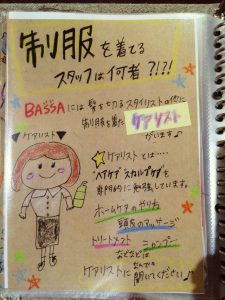 制服を着てる
スタッフは何者?!?!
BASSAには髪を切るスタイリストの他に
制服を着た ケアリスト
がいます♪
ケアリスト
ケアリストとは・・・・
ヘアケア スカルプケアを
専門的に勉強しています。
ホームケアのやり方
頭皮のマッサージ
トリートメント シャンプー
などなどは
なんでも
ケアリストに聞いてください♪